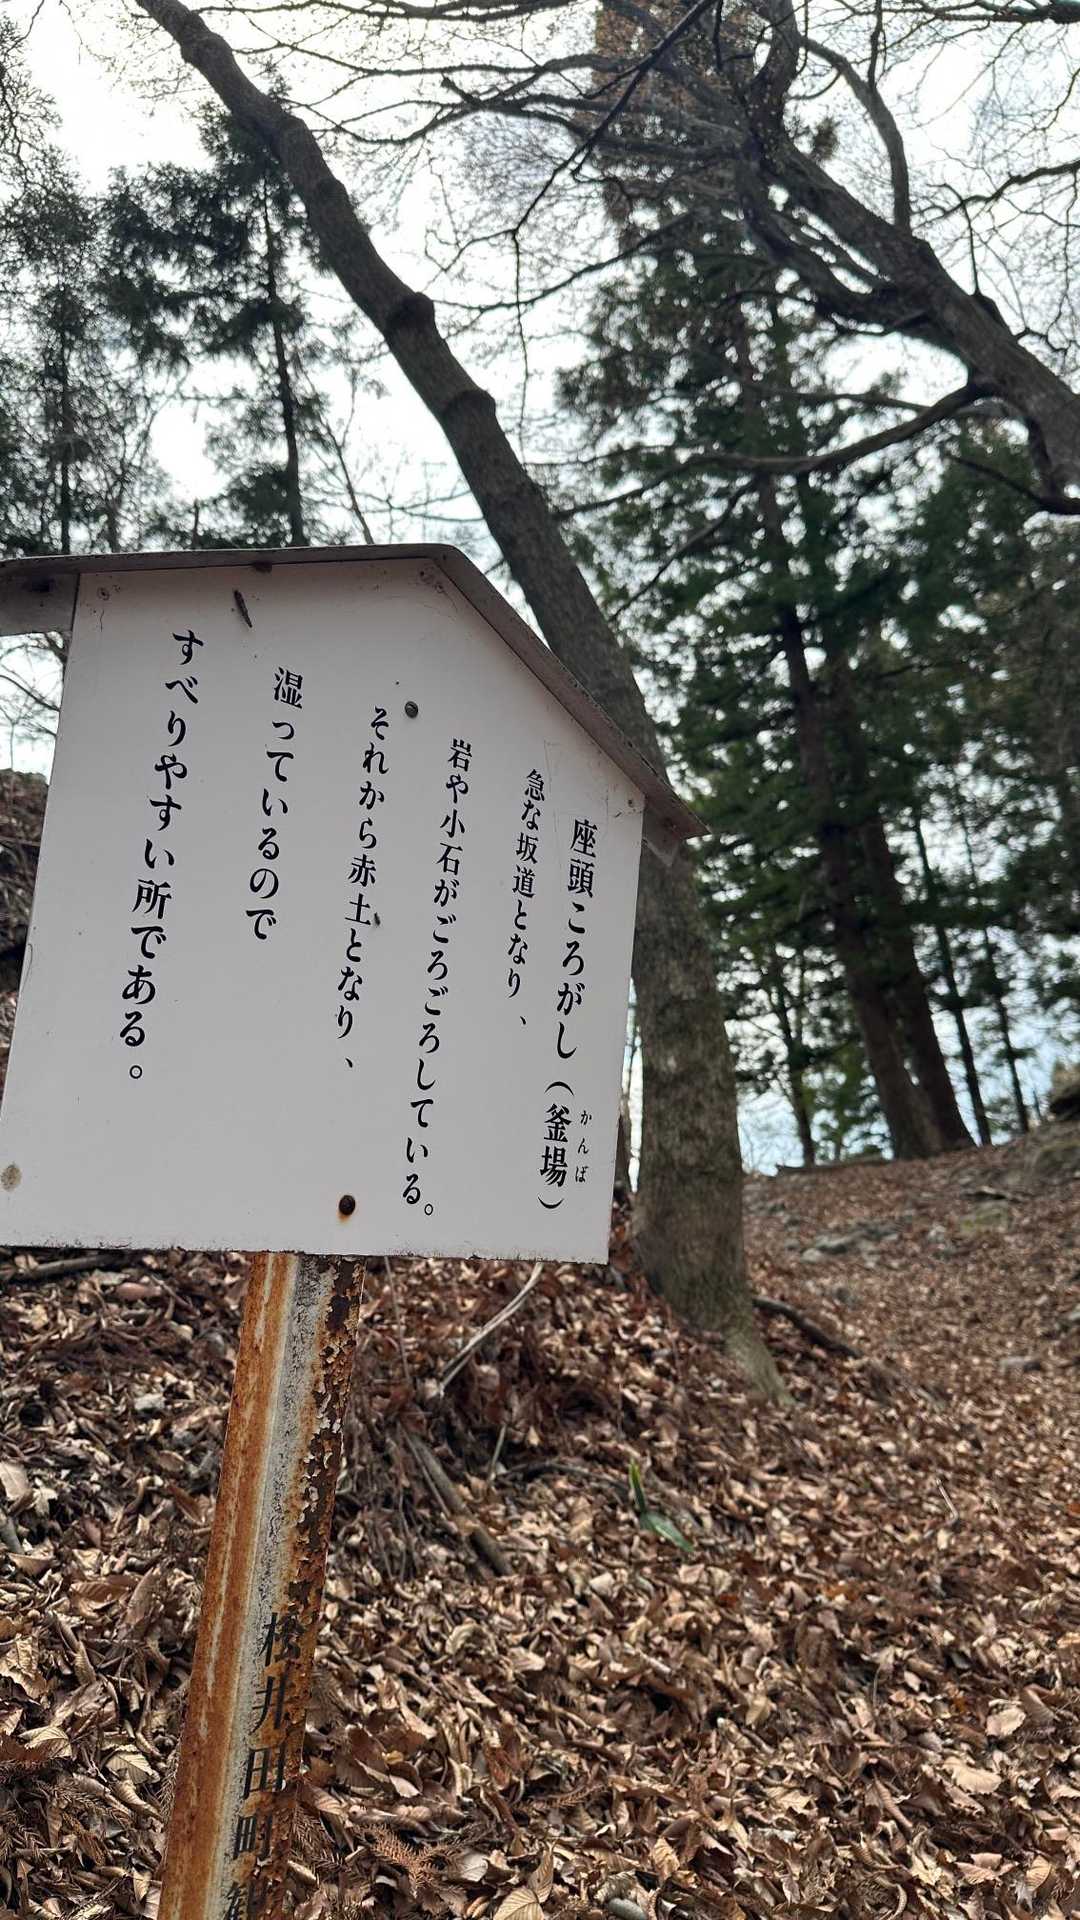 座頭ころがし（釜場）
かんば
急な坂道となり、
岩や小石がごろごろしている。
それから赤土となり、
湿っているので
すべりやすい所である。
松井田町観